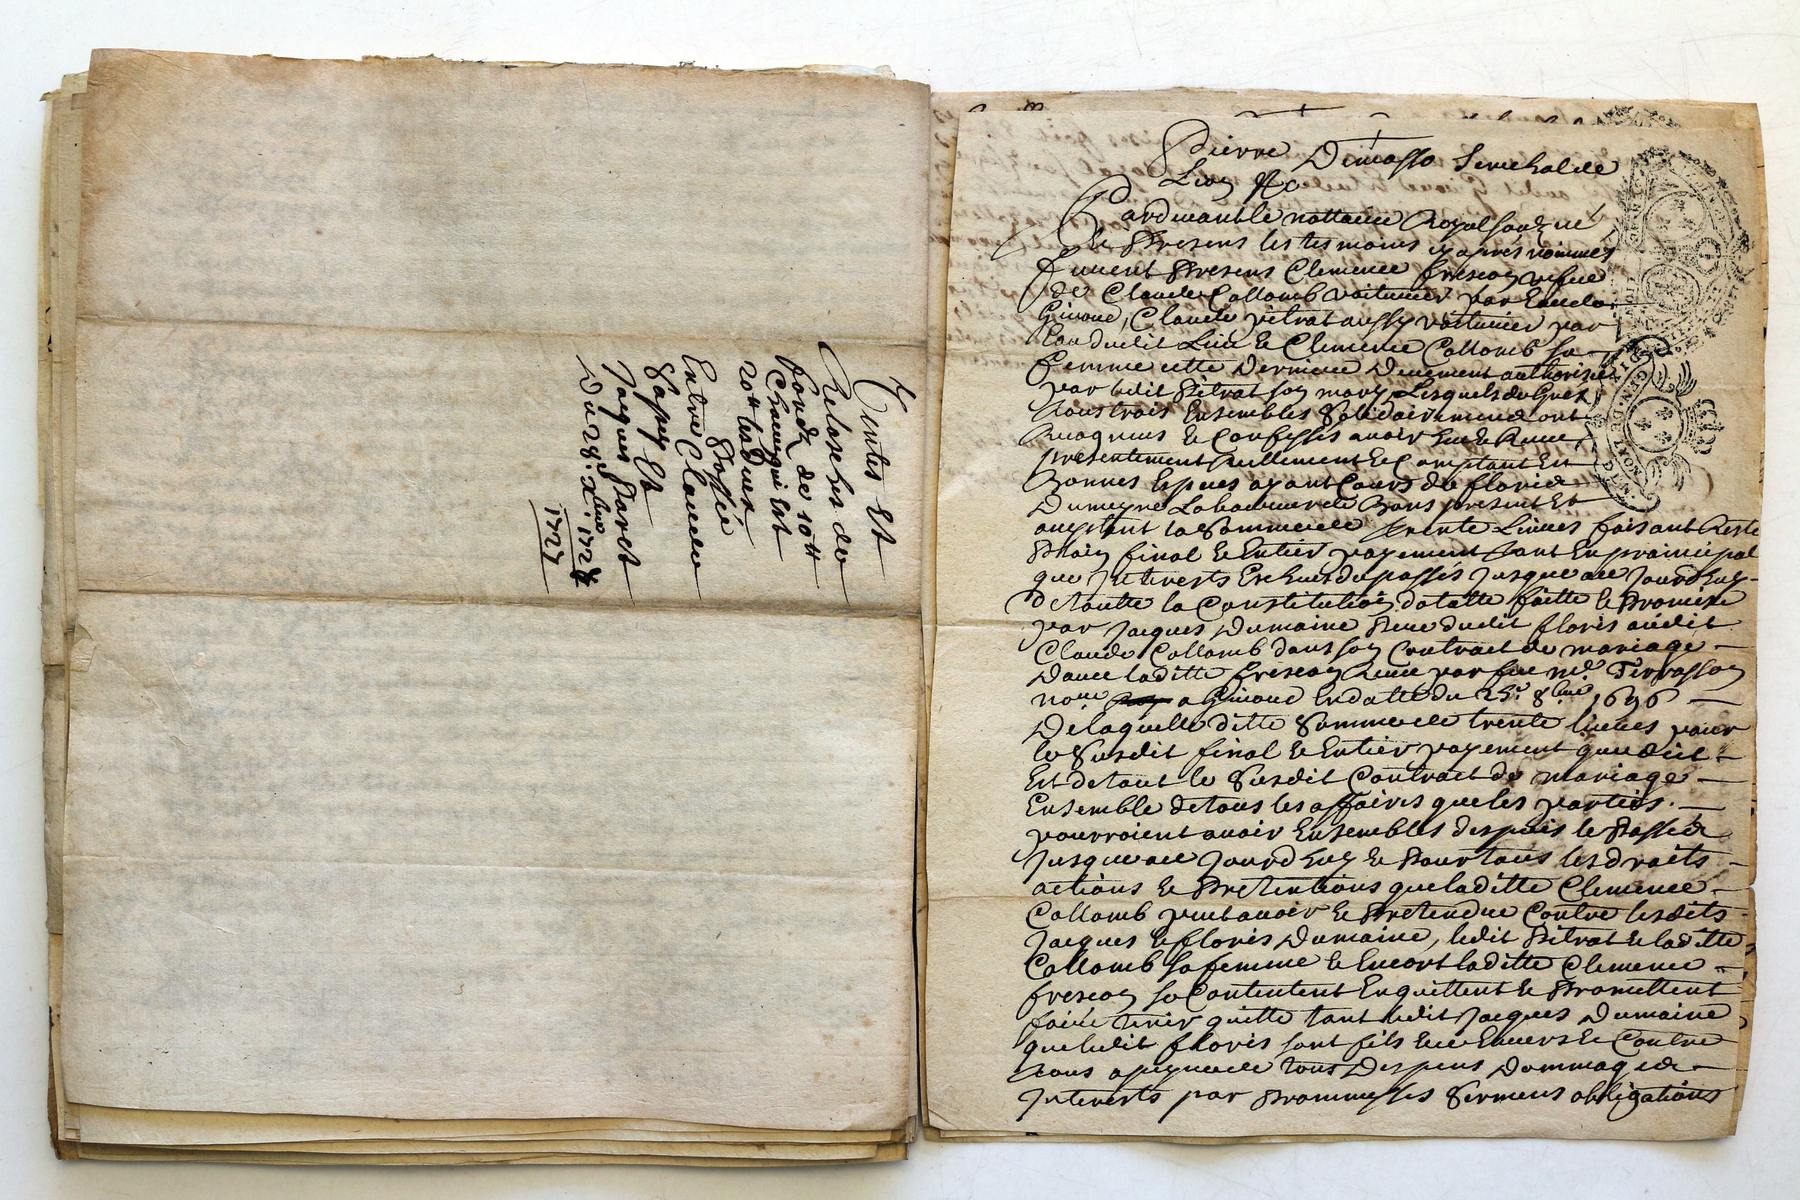 Ventes Et
Relosches de
fondz de 10tt
Chacung qui Est
20tt
Passée
Entre Claude
Sapey Et
Jacques Paret
Du 28e xbre 1727
1727
Pierre Demasso Senechal de
Lion &c
Pardevant le nottaire Royal souzné
Et Presens les tesmoins cy aprés nommés
furent Presens Clemence frescon vefue
de Claude Collomb voitturier par Eau de
Giuord, Claude pitrat aussy voitturier par
Eau dudit Lieu Et Clemence Collomb sa
femme cette derniere Deuement authorisée
par ledit Pitrat son mary, Lesquels de Gréz
tous trois Ensembles Solidairement ont
Recogneus Et Confessés avoir Eu Et Receu
presentement reellement Et Comptant En
Bonnes Especes ayant Cours de floris
Dumayne Laboureur de present Et
aceptant la Somme de trente Liures faisant Reste
Plain final Et Entier payement tant En prainçipal
que jnterests Escheus du passés jusque au jourdhuy
de toutte la Constitution dotalle faitte Et Promise
par Jacques Dumaine Pere dudit floris audit
Claude Collomb dans son Contrait de mariage
Dauec laditte frescon Receu par feu me Terrasson
nore a Giuord En datte du 25e 8bre 1696
De laquelle ditte Somme de trente liures pour
le Susdit final Et Entier payement que dict
Est de tout le Susdit Contract de mariage
Ensemble de tous les affaires que les parties
pourroient auoir Ensembles despuis le Passée
Jusque au Jourdhuy Et Pour tous les droits
actions Et Pretentions que laditte Clemence
Collomb peut auoir Et Pretendue Contre lesdits
Jacques Et floris Dumaine, ledit Pitrat Et laditte
Collomb sa femme Et Encort laditte Clemence
frescon se Contentent En quittent Et Promettent
faire tenir quitte tant ledit Jacques Dumaine
que ledit floris sont fils Enuers Et Contre
tous a peyne de tous Despens Dommages
Jnterests par Promesses Sermens obligations